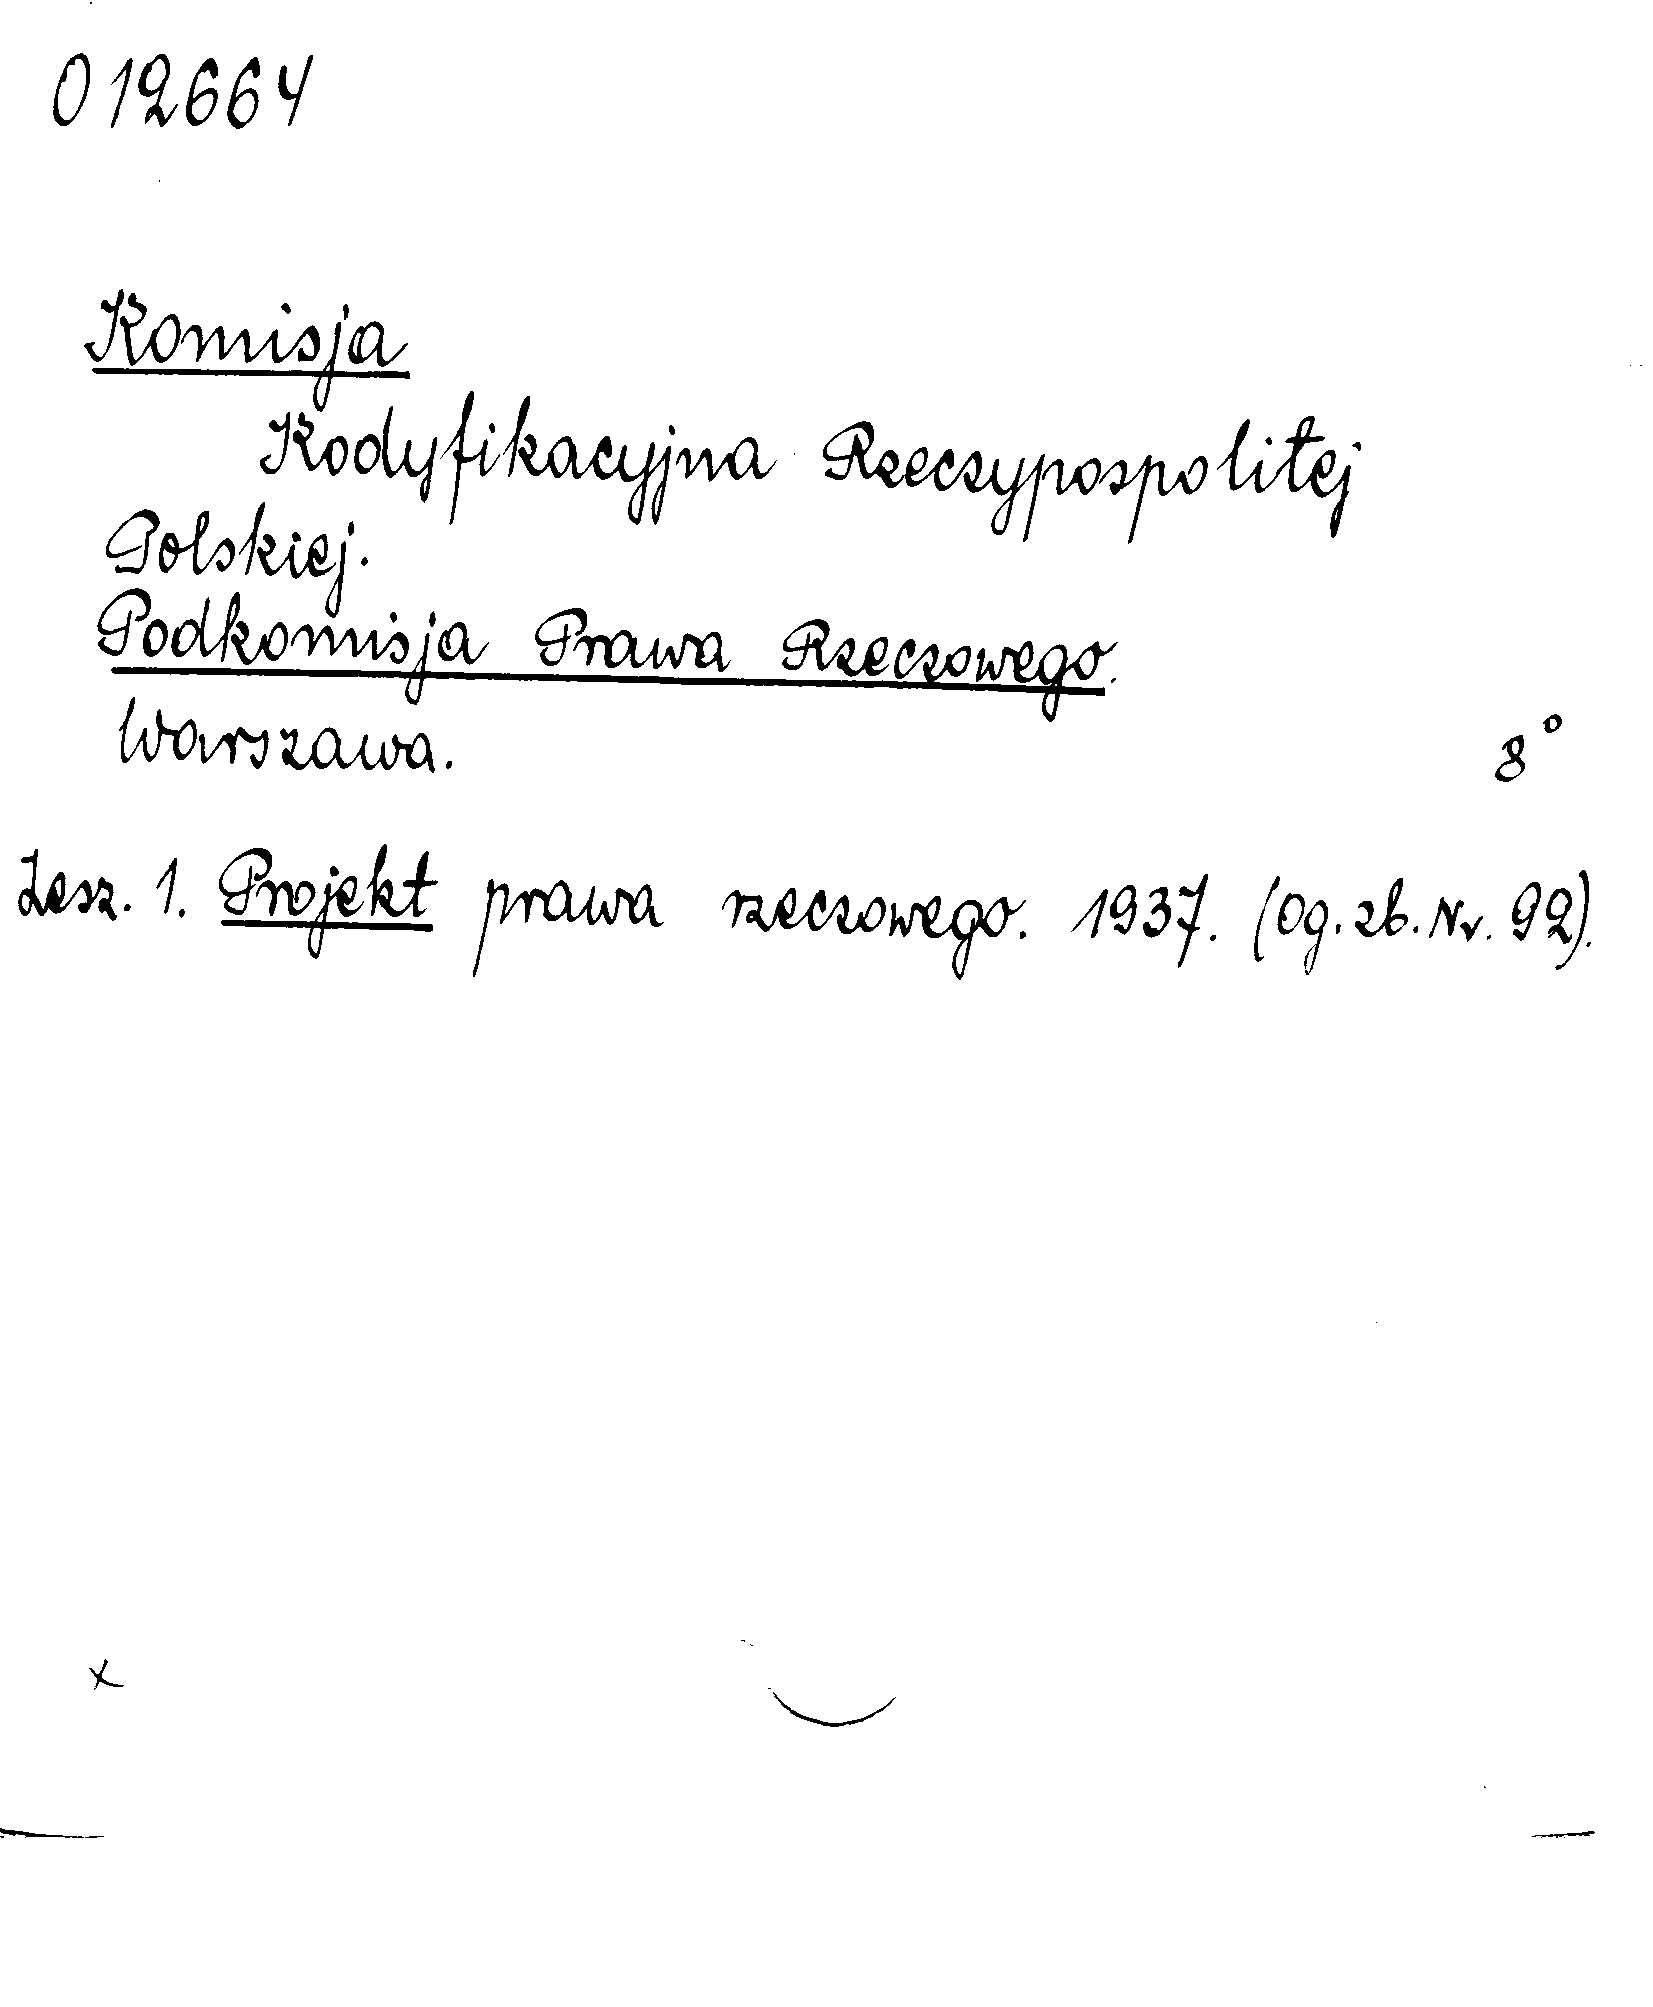 012664
Komisja
Kodyfikacyjna Rzeczypospolitej
Polskiej.
Podkomisja Prawa Rzeczowego.
Warszawa. 8°
Zesz. 1. Projekt prawa rzeczowego. 1937. (Og. zb. Nr. 92).
x